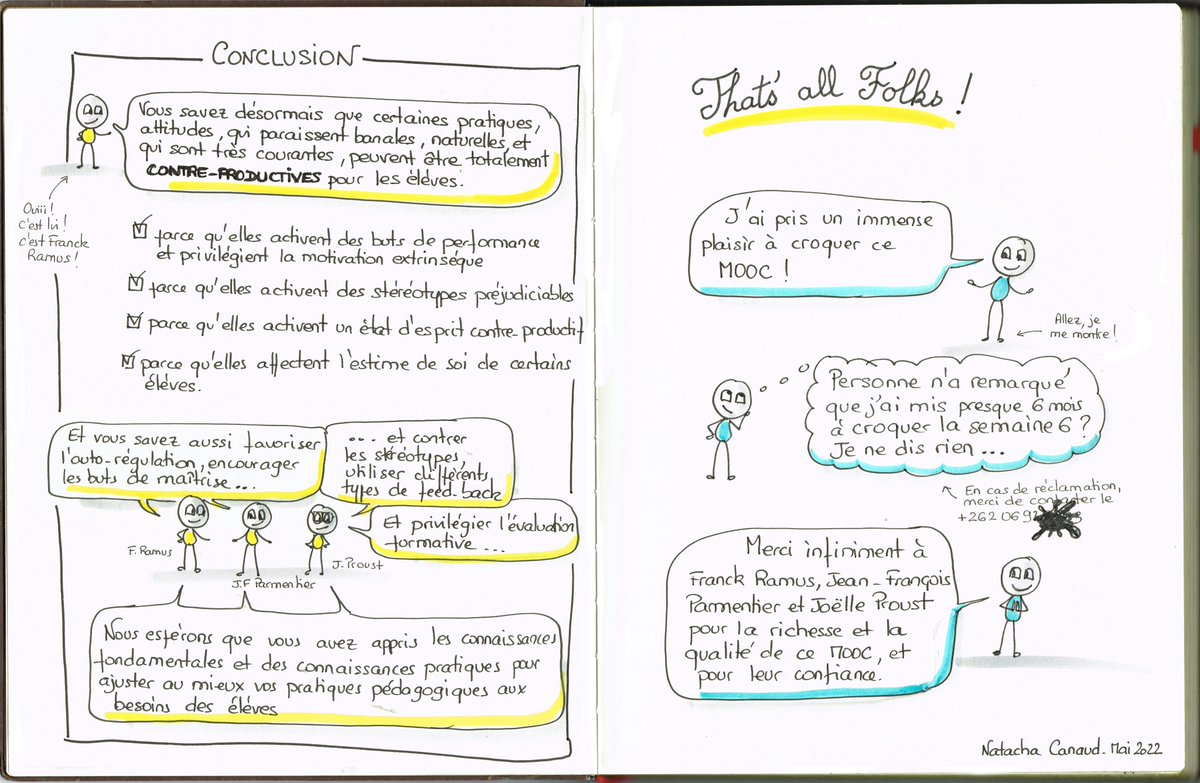 CONCLUSION
Vous savez désormais que certaines pratiques,
attitudes, qui paraissent banales, naturelles, et
qui sont très courantes, peuvent être totalement
CONTRE-PRODUCTIVES pour les élèves.
Ouiii !
c'est lui !
c'est Franck
Ramus !
Parce qu'elles activent des buts de performance
et privilégient la motivation extrinsèque
Parce qu'elles activent des stéréotypes préjudiciables
parce qu'elles activent un état d'esprit contre-productif
parce qu'elles affectent l'estime de soi de certains
élèves.
Et vous savez aussi favoriser
l'auto-régulation, encourager
les buts de maîtrise...
... et contrer
les stéréotypes,
utiliser différents
types de feed-back
Et privilégier l'évaluation
formative...
F. Ramus
J.F Parmentier
J. Proust
Nous espérons que vous avez appris les connaissances
fondamentales et des connaissances pratiques pour
ajuster au mieux vos pratiques pédagogiques aux
besoins des élèves
That's all Folks !
J'ai pris un immense
plaisir à croquer ce
MOOC !
Allez, je
me montre !
Personne n'a remarqué
que j'ai mis presque 6 mois
à croquer la semaine 6 ?
Je ne dis rien...
En cas de réclamation,
merci de contacter le
+262 06 92
Merci infiniment à
Franck Ramus, Jean-François
Parmentier et Joëlle Proust
pour la richesse et la
qualité de ce MOOC, et
pour leur confiance.
Natacha Canaud. Mai 2022